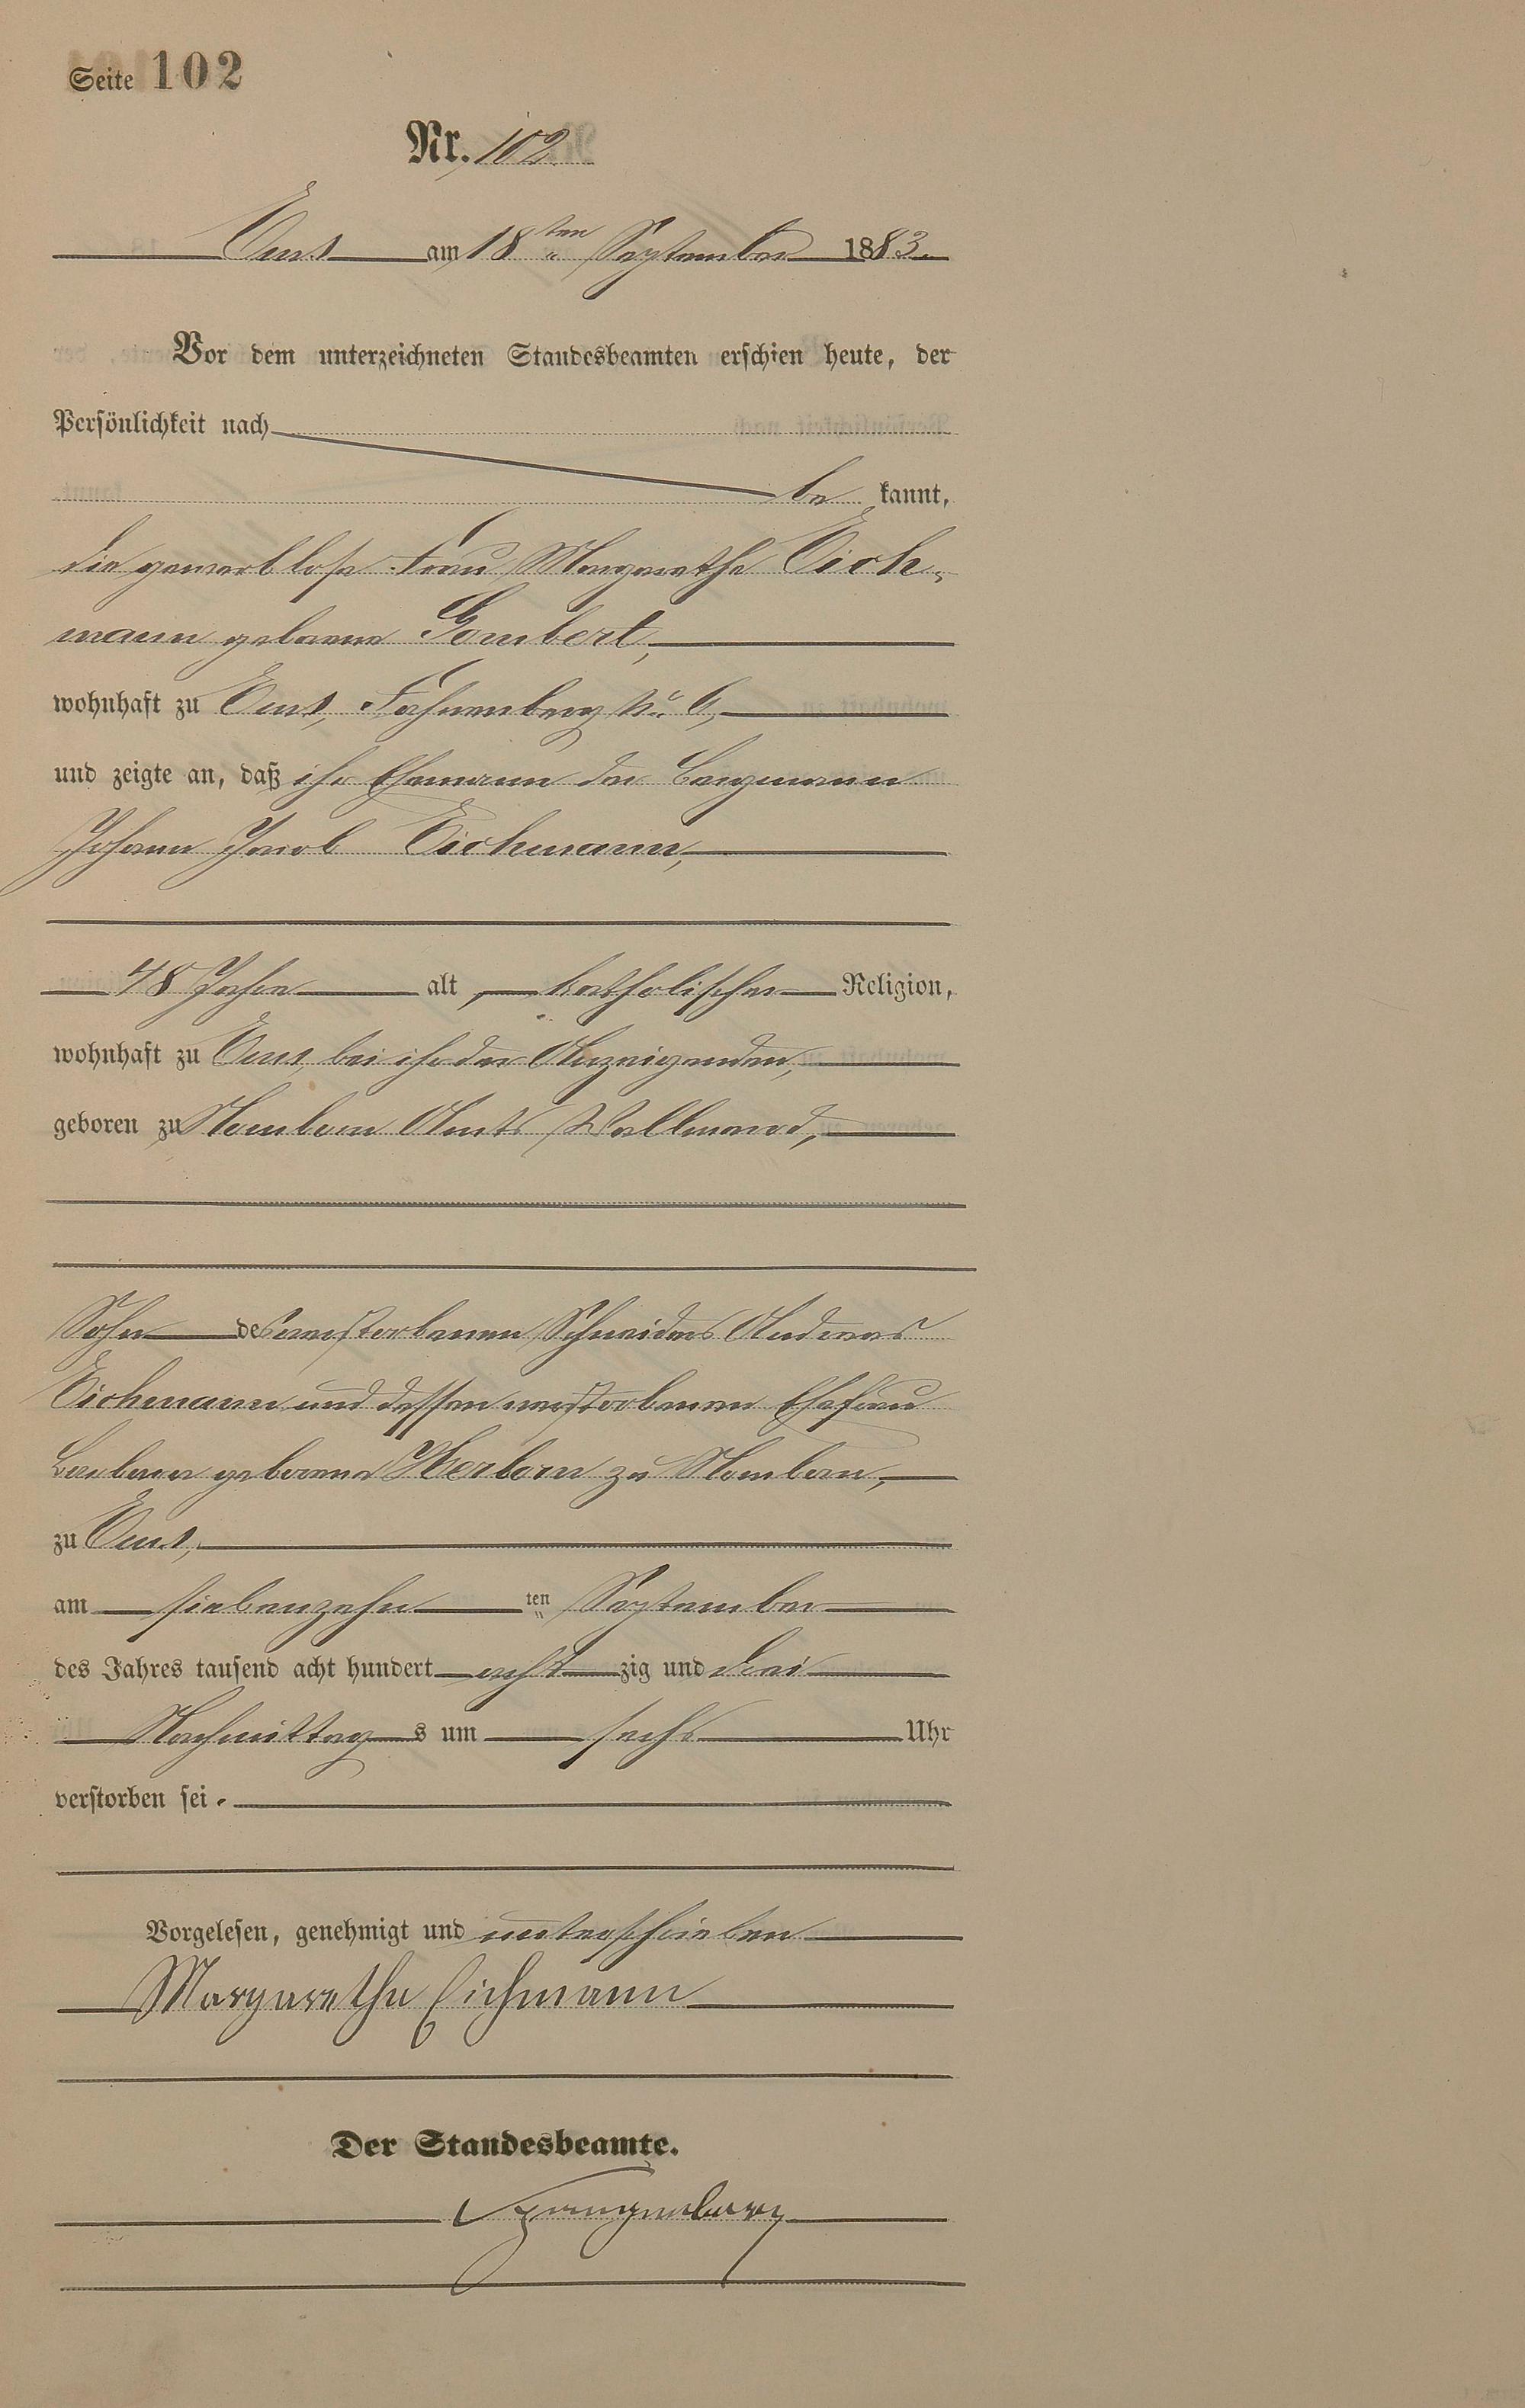 Seite 102
Nr. 102.
Ems am 18ten September 1883.
Vor dem unterzeichneten Standesbeamten erschien heute, der
Persönlichkeit nach
be kannt,
die gewerblose Frau Margarethe Eich-
mann geborene Gombert,
wohnhaft zu Ems, Fahnenberg No 6,
und zeigte an, daß ihr Ehemann der Bergmann
Johann Jacob Eichmann,
48 Jahre alt, katholischer Religion,
wohnhaft zu Ems, bei ihr der Anzeigenden,
geboren zu Nomborn Amts Wallmerod,
Sohn des verstorbenen Schneiders Andreas
Eichmann und dessen verstorbenen Ehefrau
Barbara geborene Herborn zu Nomborn,
zu Ems,
am siebenzehn ten September
des Jahres tausend acht hundert acht zig und drei
Nachmittag s um sechs Uhr
verstorben sei.
Vorgelesen, genehmigt und unterschrieben
Margarethe Eichmann
Der Standesbeamte.
Spangenberg